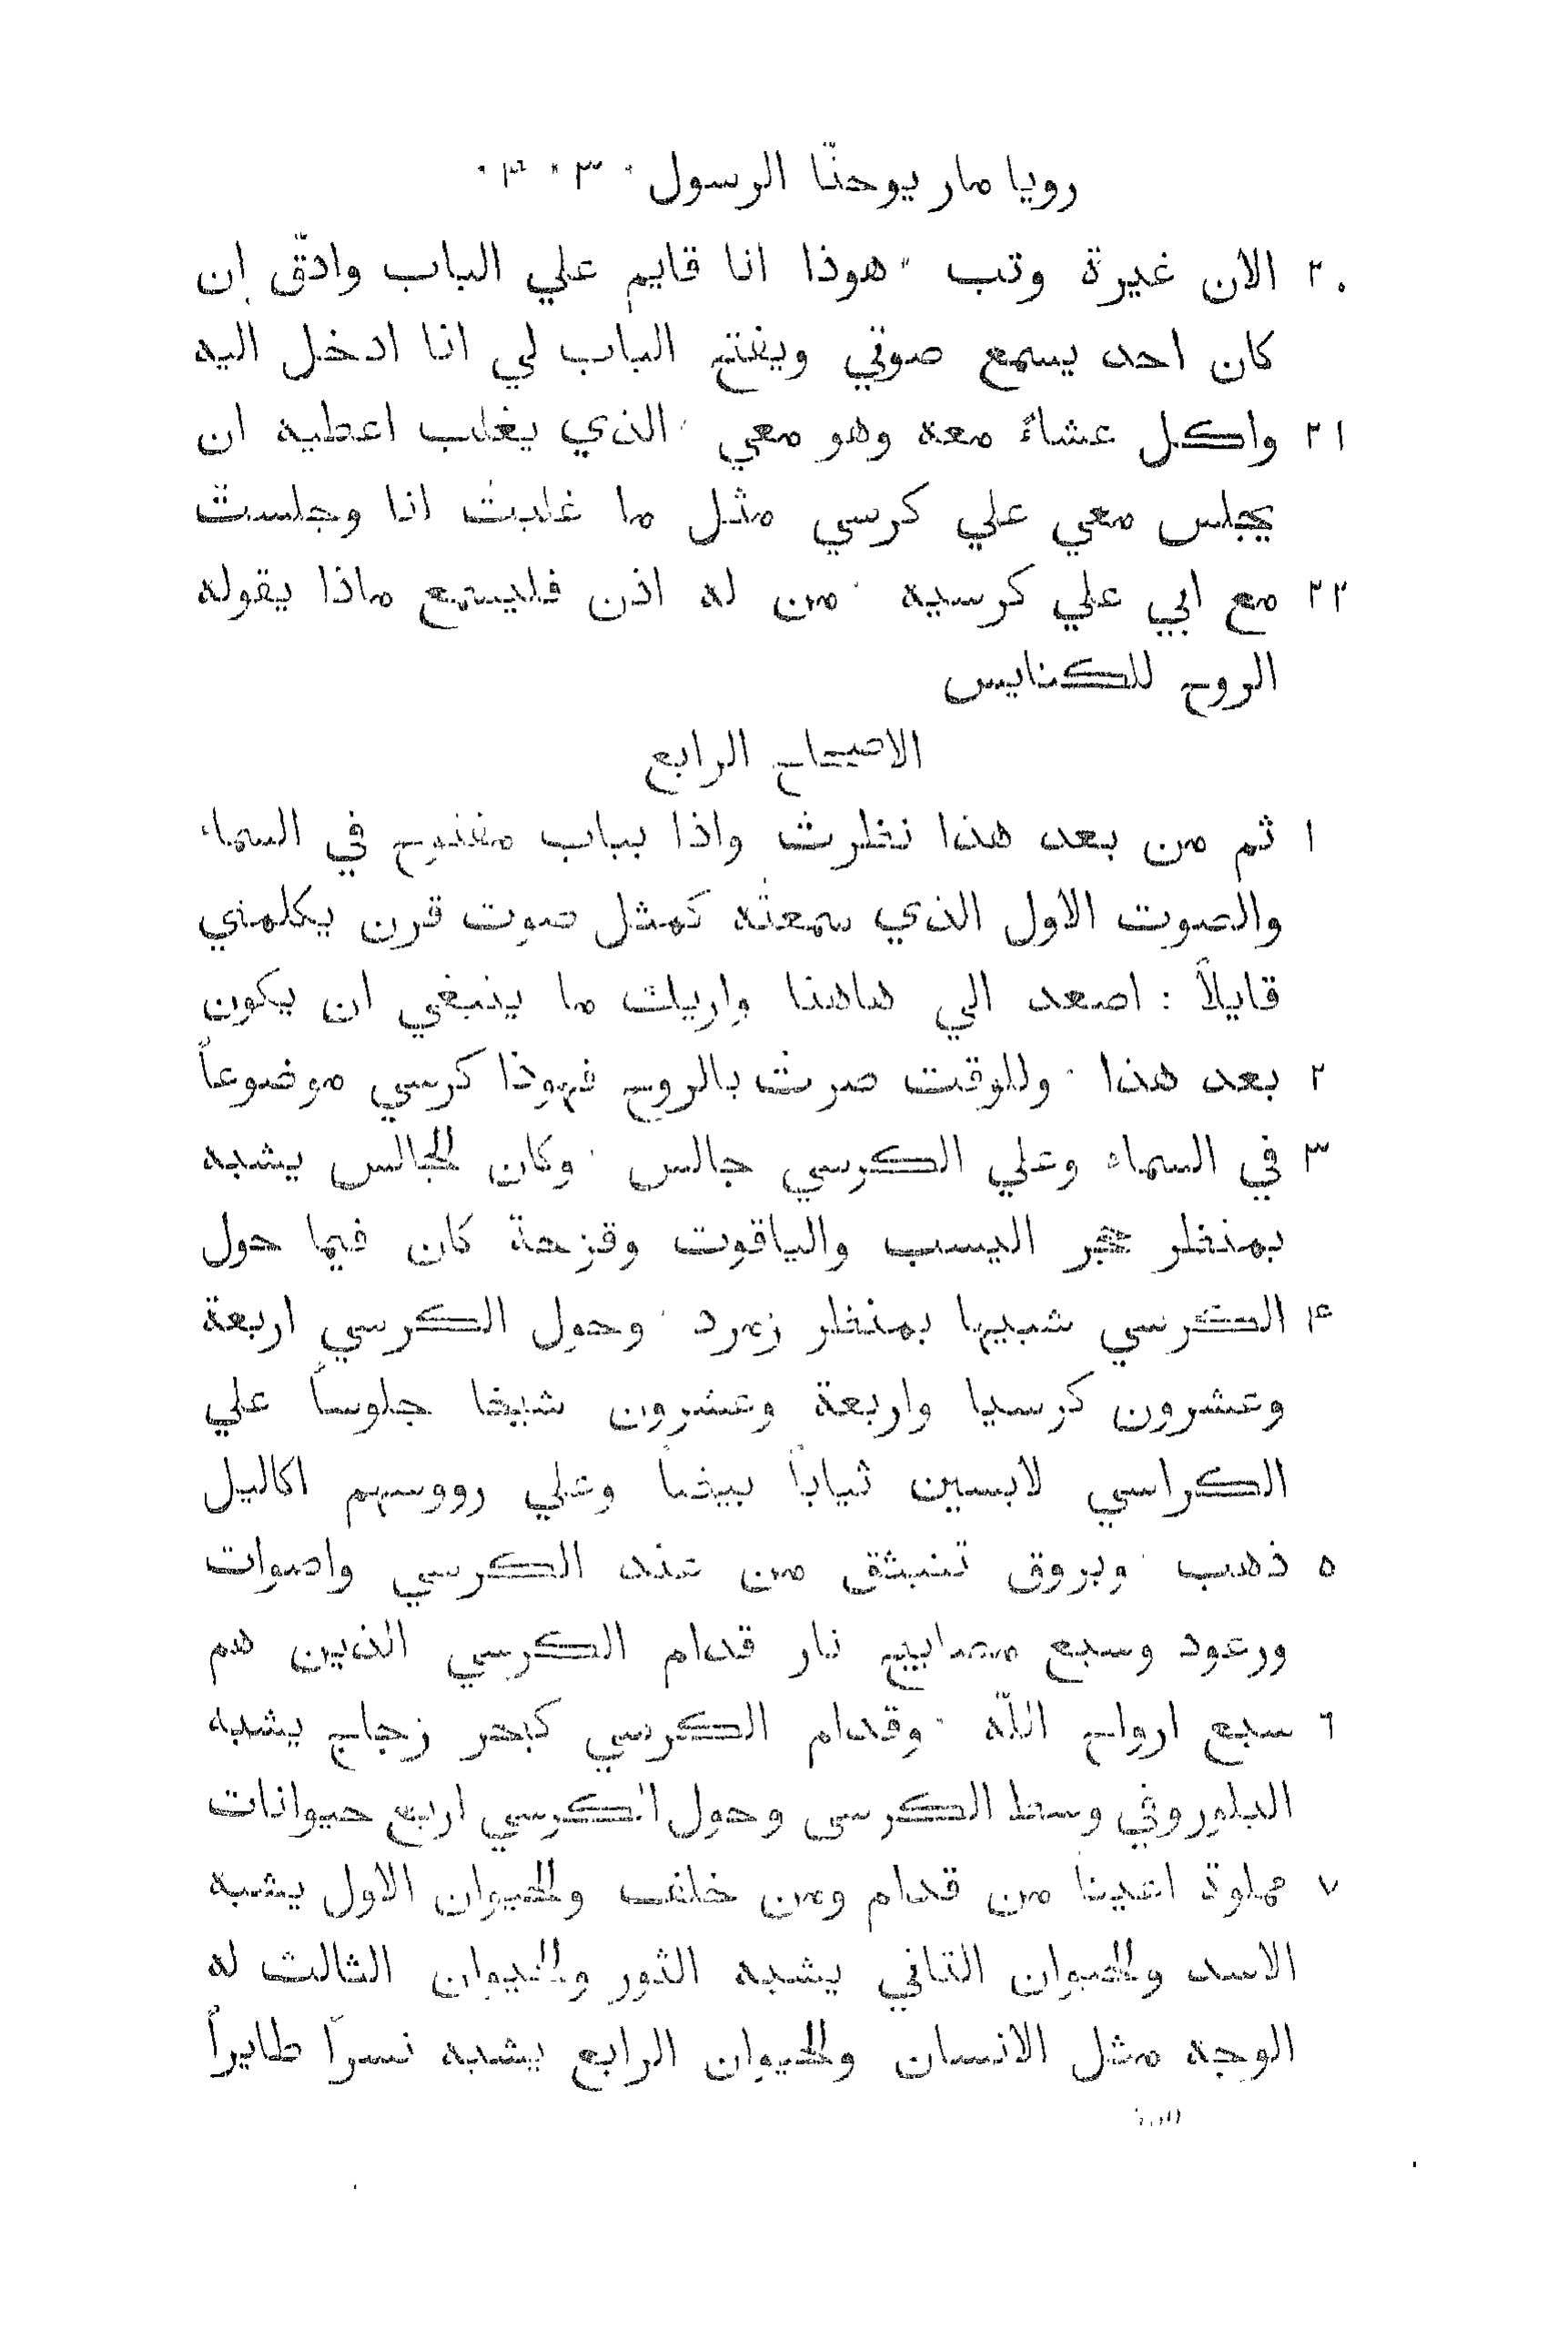 رويا مار يوحنّا الرسول ٠ ٣ ٠ ٤ ٠
٢٠ الان غيرة وتب ٠ هوذا انا قايم علي الباب وادقّ ان
كان احد يسمع صوتي ويفتح الباب لي انا ادخل اليه
٢١ واكل عشاءً معه وهو معي ٠ الذي يغلب اعطيه ان
يجلس معي علي كرسي مثل ما غلبت انا وجلست
٢٢ مع ابي علي كرسيه ٠ من له اذن فليسمع ماذا يقوله
الروح للكنايس
الاصحاح الرابع
١ ثم من بعد هذا نظرت واذا بباب مفتوح في السماء
والصوت الاول الذي سمعته كمثل صوت قرن يكلمني
قايلاً : اصعد الي هاهنا واريك ما ينبغي ان يكون
٢ بعد هذا ٠ وللوقت صرت بالروح فهوذا كرسي موضوعاً
٣ في السماء وعلي الكرسي جالس ٠ وكان الجالس يشبه
بمنظر حجر اليسب والياقوت وقزحة كان فيما حول
٤ الكرسي شبيها بمنظر زمرد ٠ وحول الكرسي اربعة
وعشرون كرسيا واربعة وعشرون شيخا جلوساً علي
الكراسي لابسين ثياباً بيضاً وعلي رووسهم اكاليل
٥ ذهب ٠ وبروق تنبثق من عند الكرسي واصوات
ورعود وسبع مصابيح نار قدام الكرسي الذين هم
٦ سبع ارواح اللّه ٠ وقدام الكرسي كبحر زجاج يشبه
البلور وفي وسط الكرسي وحول الكرسي اربع حيوانات
٧ مملوة اعينا من قدام ومن خلف والحيوان الاول يشبه
الاسد والحيوان الثاني يشبه الثور والحيوان الثالث له
الوجه مثل الانسان والحيوان الرابع يشبه نسراً طايراً